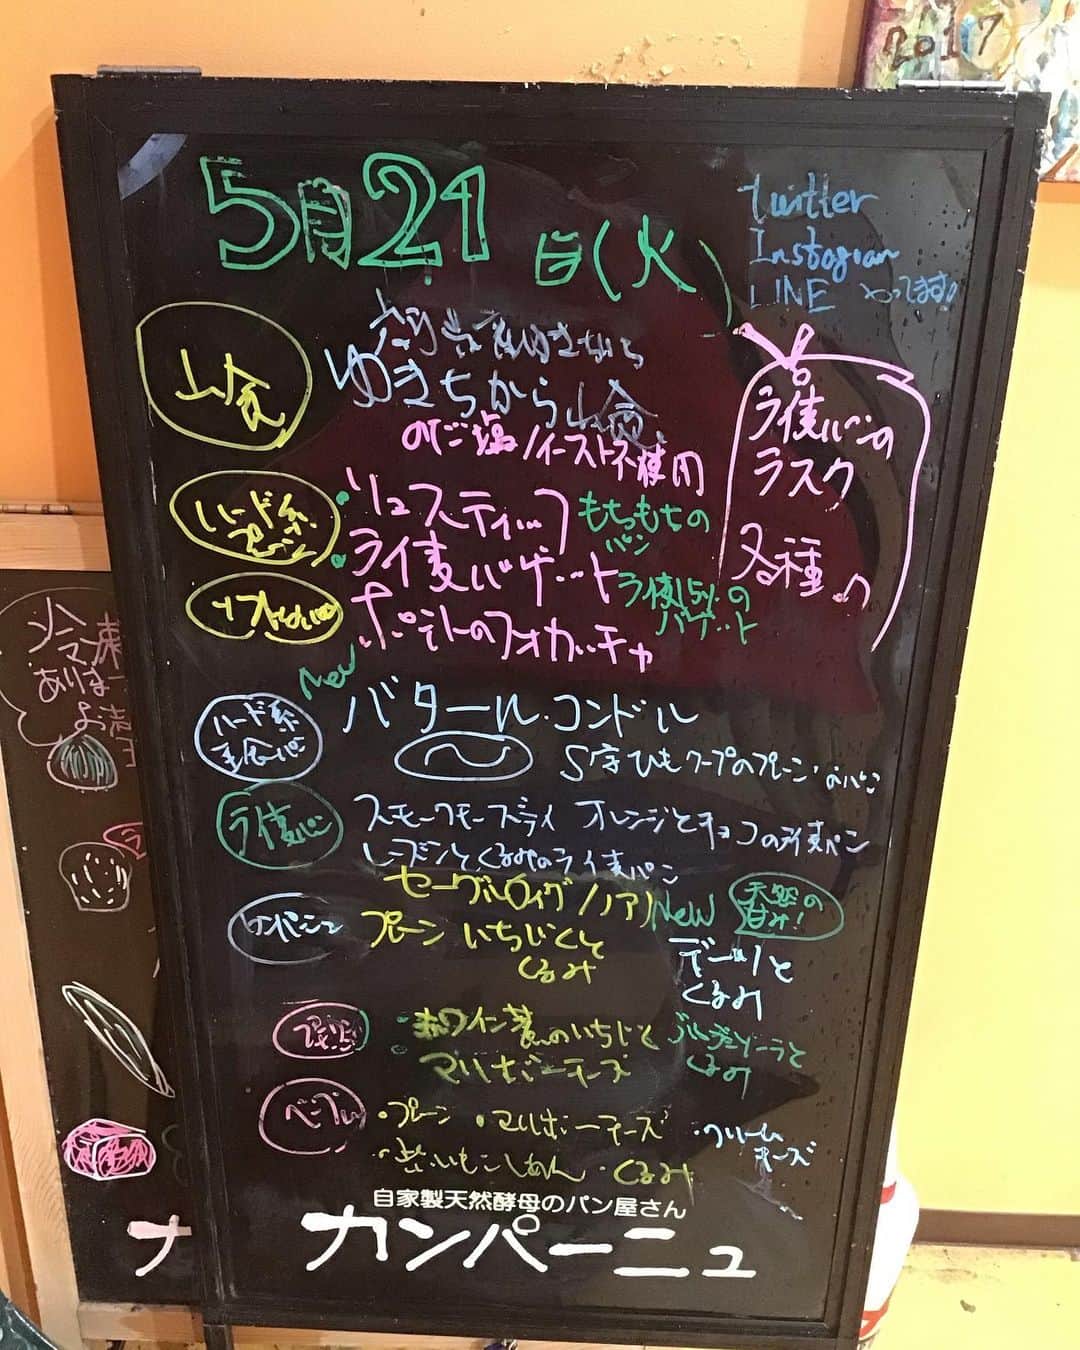 2017
5月21日(火)
Twitter
Instagram
LINE やってます!
山食
ゆきちから
ゆきちから山食
のだ塩/イースト不使用
ライ麦パンの
ラスク
各種
ハード系
リュスティック
もちもちの
パン
ライ麦バゲット
ライ麦15%の
バゲット
ポテトのフォカッチャ
New
ハード系
バタール・コンドル
S字ひもクープのプレーン
ライ麦パン
スモークチーズ
オレンジとチョコのライ麦パン
レーズンとくるみのライ麦パン
セーグル
New
天然の
甘み!
カンパーニュ
プレーン
いちじくと
くるみ
デーツと
くるみ
赤ワイン煮のいちじくと
くるみ
マリボーチーズ
ベーグル
・プレーン
・マリボーチーズ
・クリーム
チーズ
・くるみ
自家製天然酵母のパン屋さん
カンパーニュ
冷凍
あります